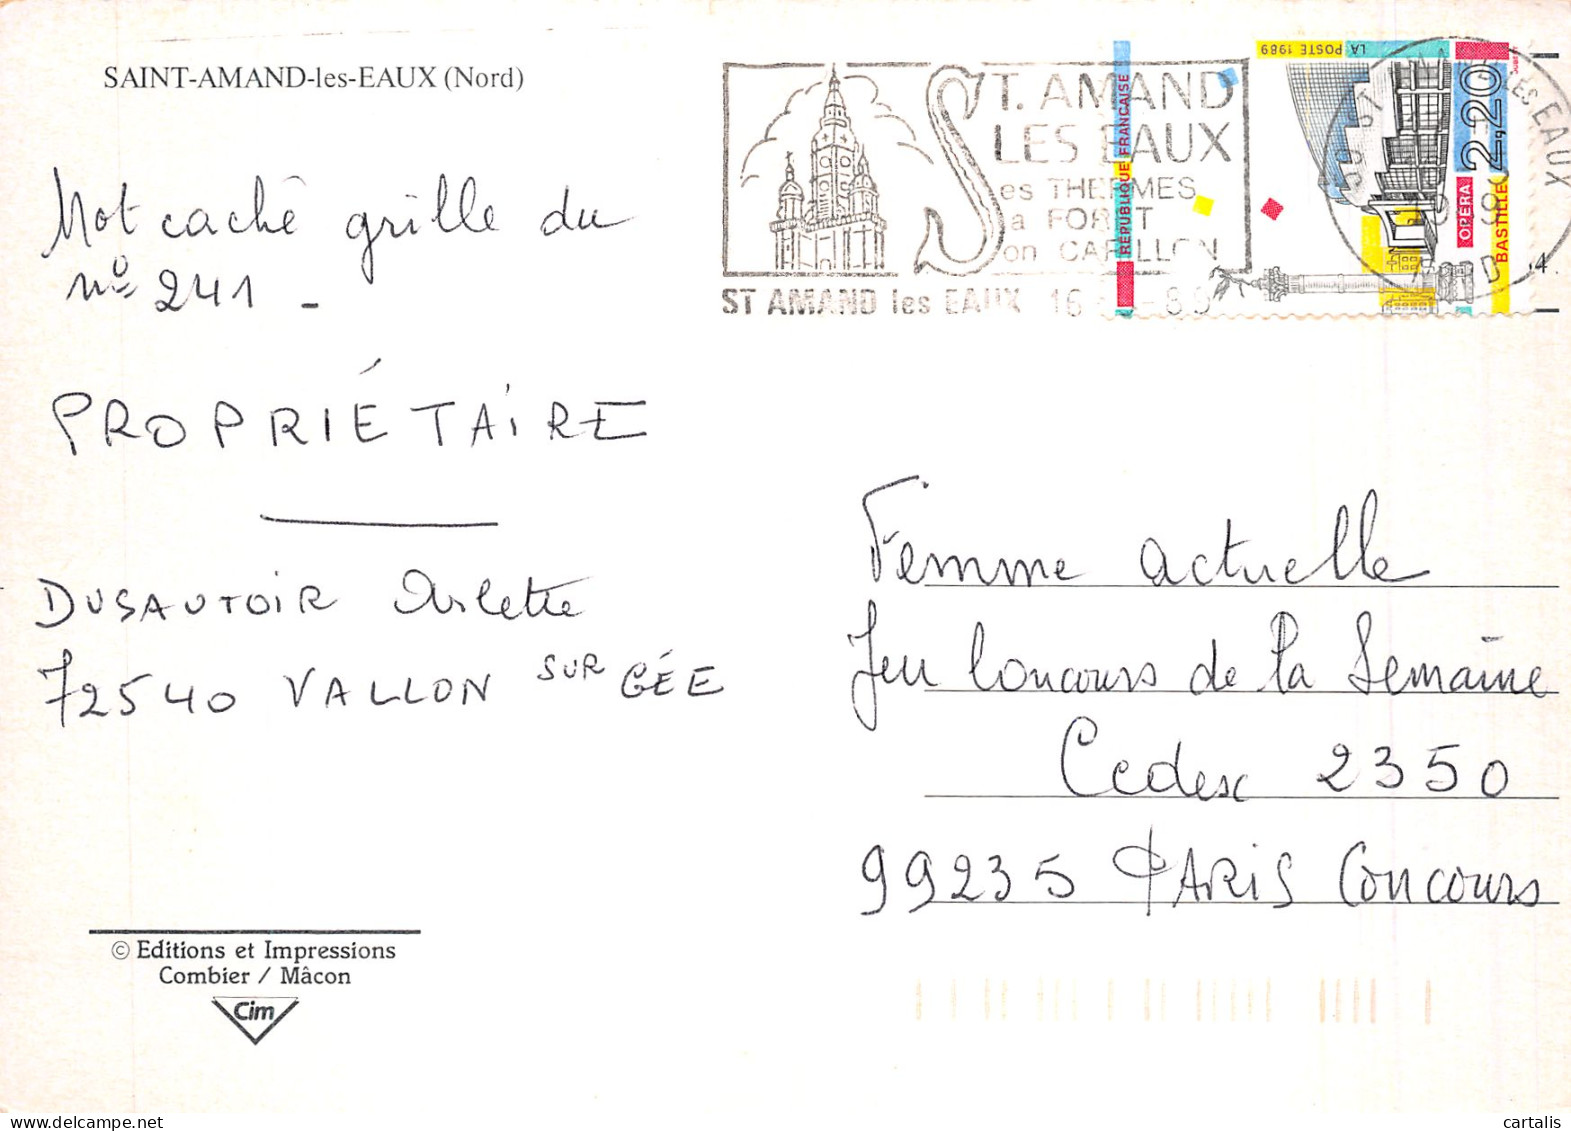 SAINT-AMAND-les-EAUX (Nord)
Mot caché grille du
n° 241 -
PROPRIÉTAIRE
DUSAUTOIR Arlette
72540 VALLON SUR GÉE
© Editions et Impressions
Combier / Mâcon
Cim
ST. AMAND
LES EAUX
Ses THERMES
Sa FORET
Son CARILLON
ST AMAND les EAUX 16
RÉPUBLIQUE FRANÇAISE
LA POSTE 1989
2,20
OPÉRA
BASTILLE
Femme actuelle
Jeu Concours de la Semaine
Cedex 2350
99235 PARIS Concours
cartalis